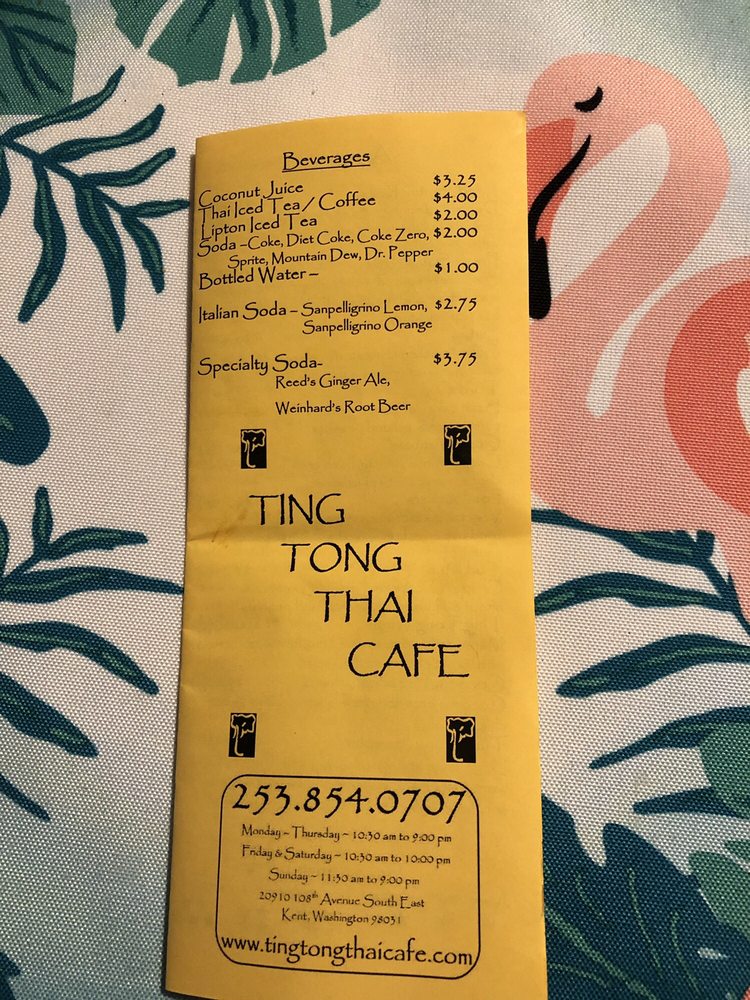 Beverages
Coconut Juice $3.25
Thai Iced Tea / Coffee $4.00
Lipton Iced Tea $2.00
Soda ~Coke, Diet Coke, Coke Zero, $2.00
Sprite, Mountain Dew, Dr. Pepper
Bottled Water ~ $1.00
Italian Soda ~ Sanpelligrino Lemon, $2.75
Sanpelligrino Orange
Specialty Soda~ $3.75
Reed's Ginger Ale,
Weinhard's Root Beer
TING
TONG
THAI
CAFE
253.854.0707
Monday ~ Thursday ~ 10:30 am to 9:00 pm
Friday & Saturday ~ 10:30 am to 10:00 pm
Sunday ~ 11:30 am to 9:00 pm
20910 108th Avenue South East
Kent, Washington 98031
www.tingtongthaicafe.com